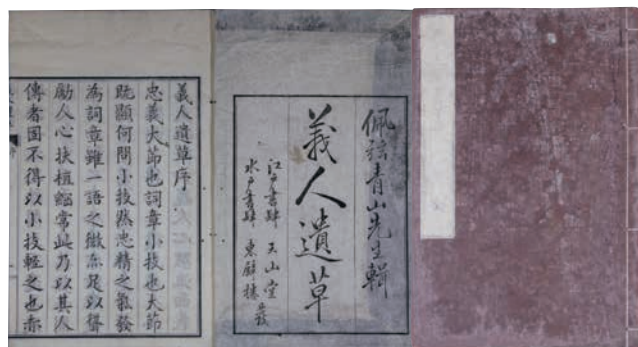 佩弦青山先生輯
義人遺草
江戸書肆 玉山堂
水戸書肆 東壁樓
義人遺草序
忠義大節也詞章小技也大節
既顯何問小技然忠精之氣發
為詞章雖一語之微亦足以聳
勵人心扶植綱常此乃以其人
傳者固不得以小技輕之也赤